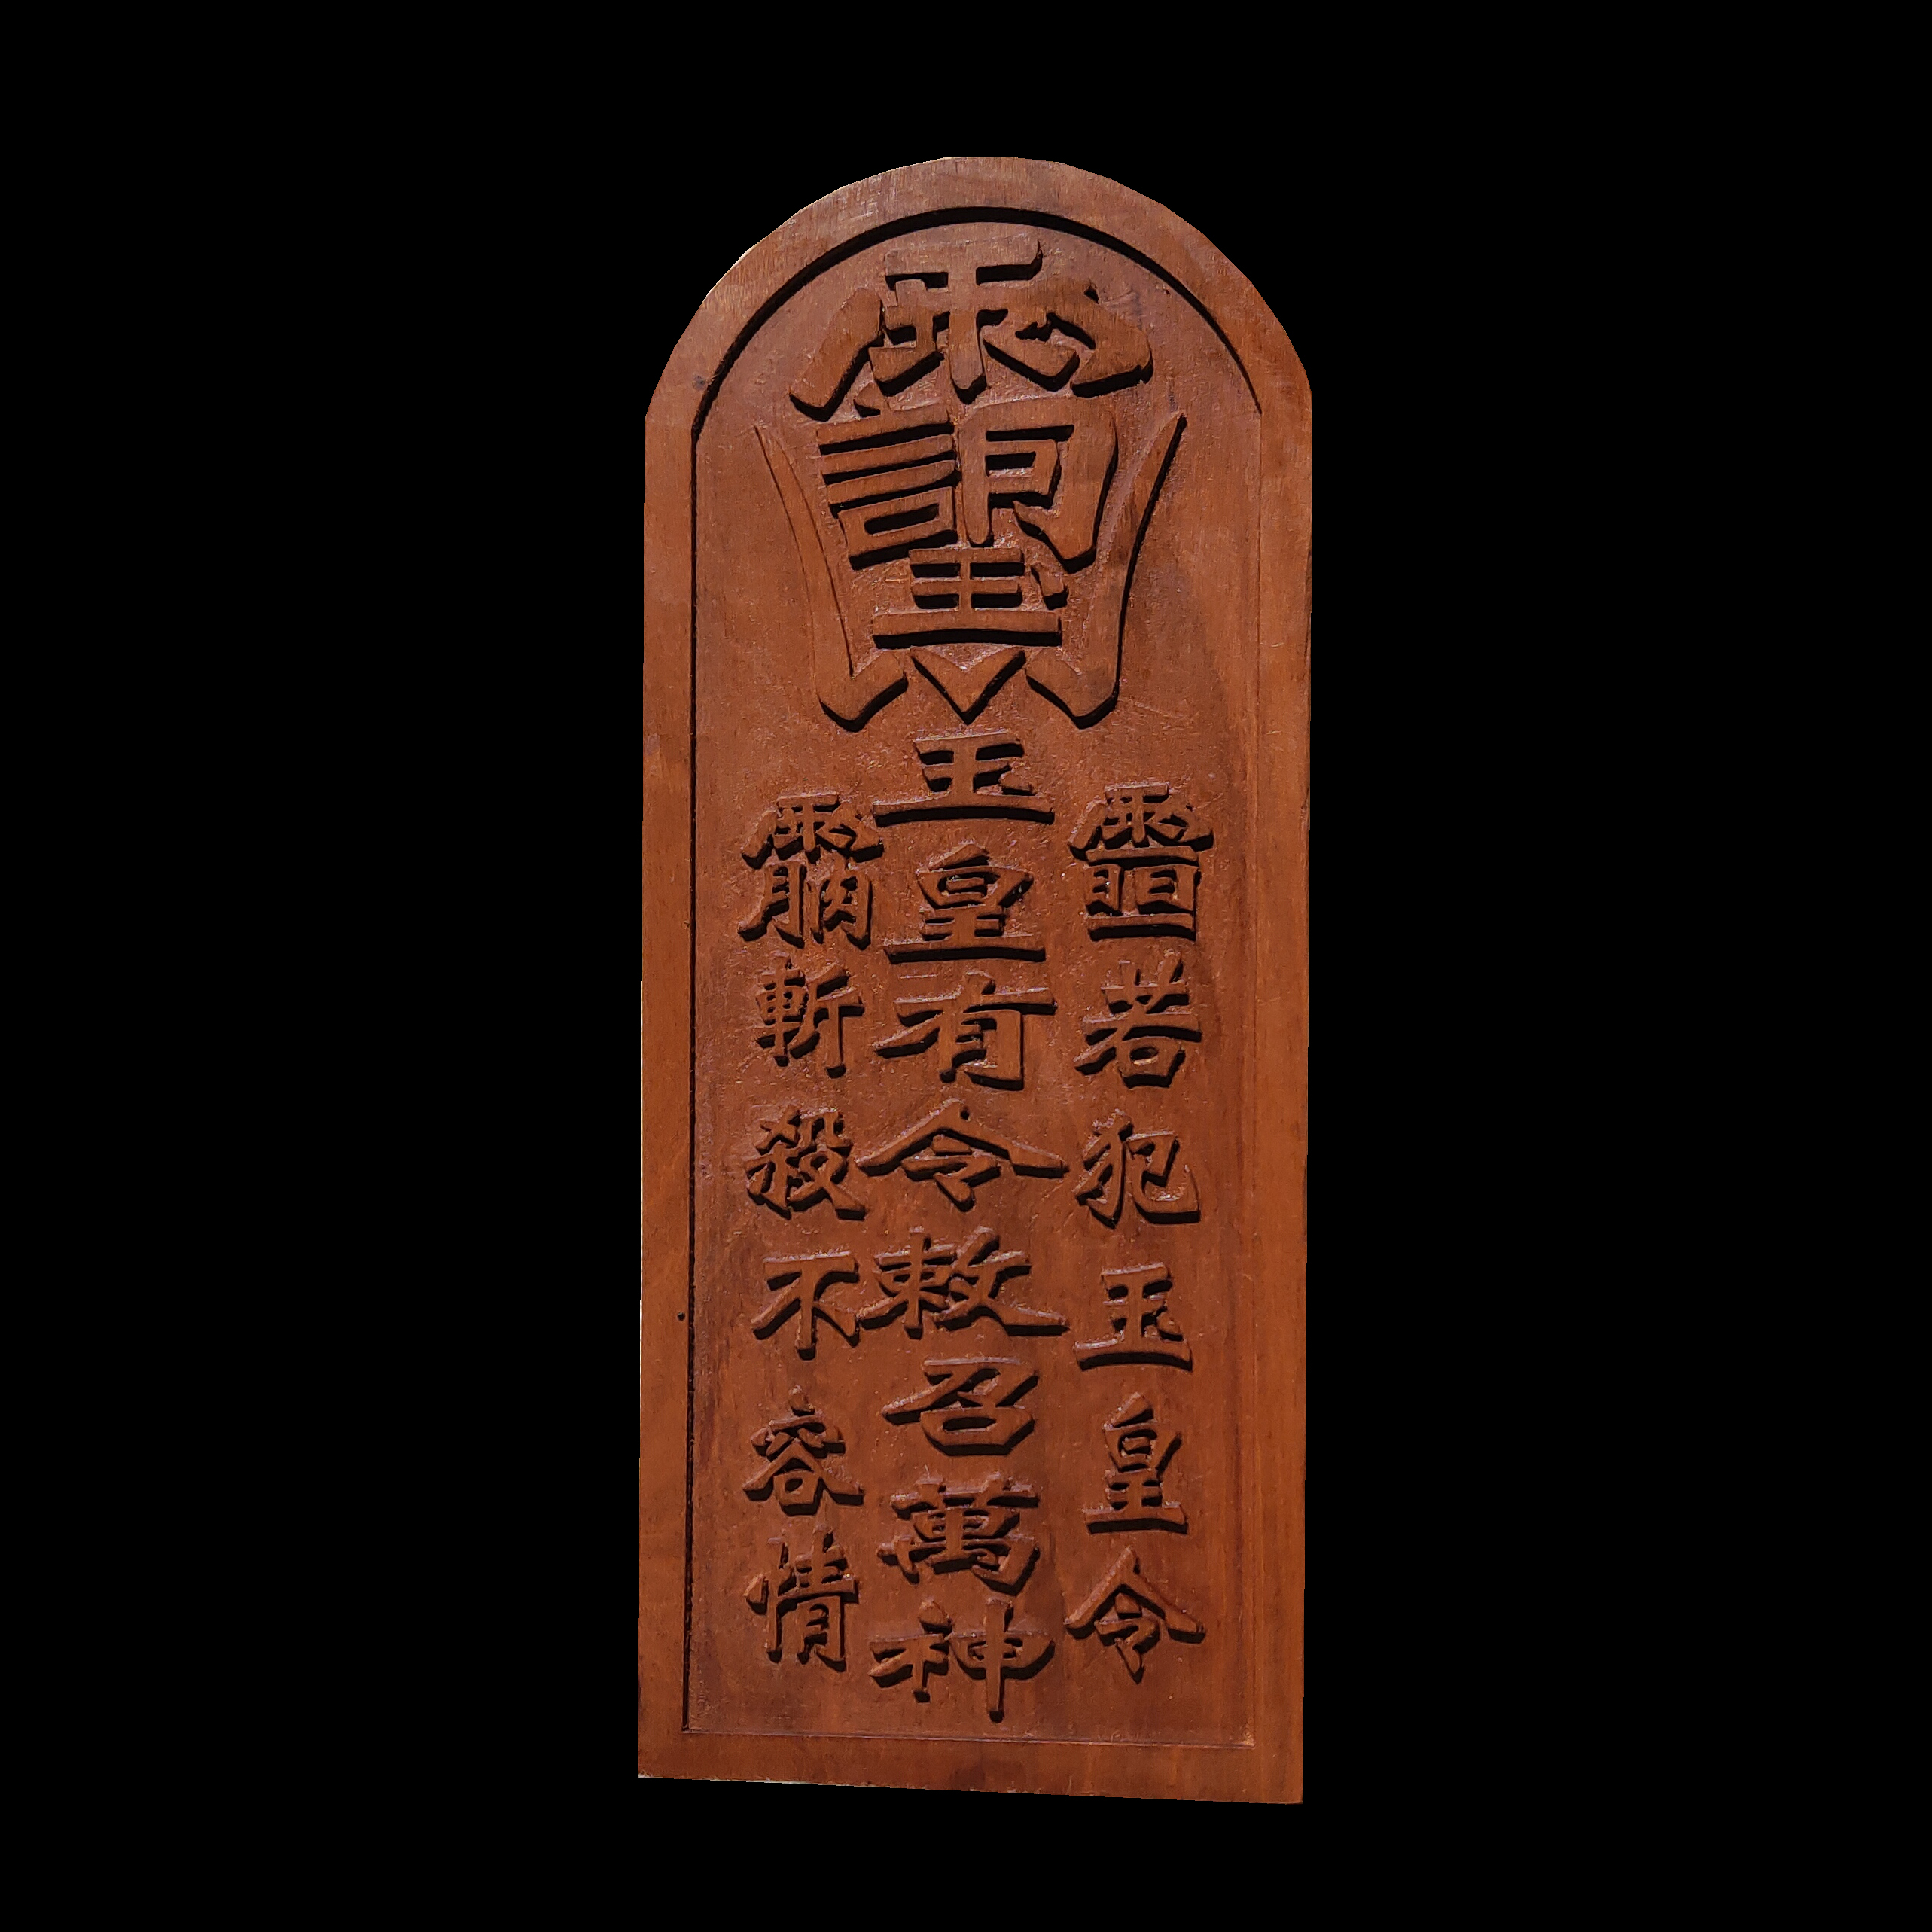 若犯玉皇令
玉皇有令敕召萬神
斬殺不容情